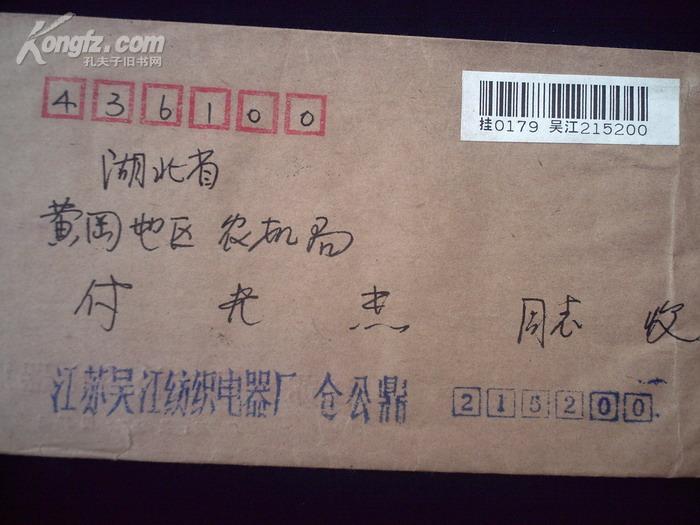 Kongfz.com
孔夫子旧书网
436100
挂0179 吴江215200
湖北省
黄冈地区农机局
付光杰 同志 收
江苏吴江纺织电器厂 仓公鼎 215200